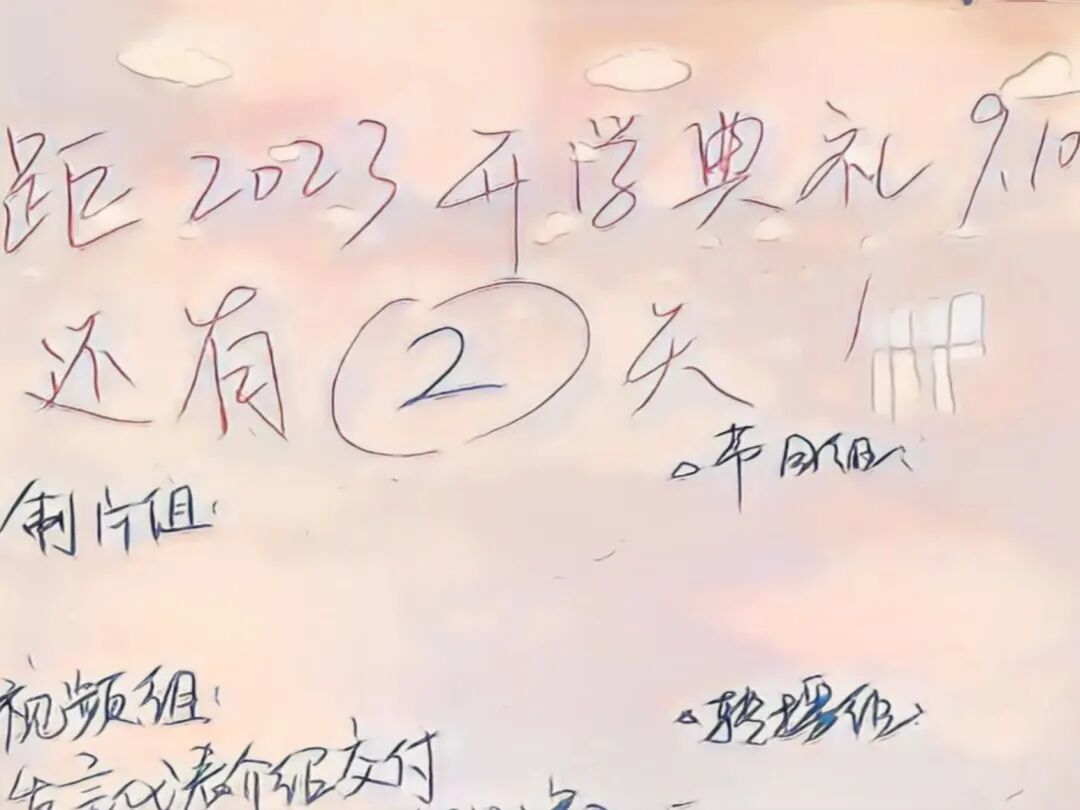 距2023开学典礼 9.10
还有2天!
节目组:
制片组:
视频组:
转播组:
发言代表介绍交付